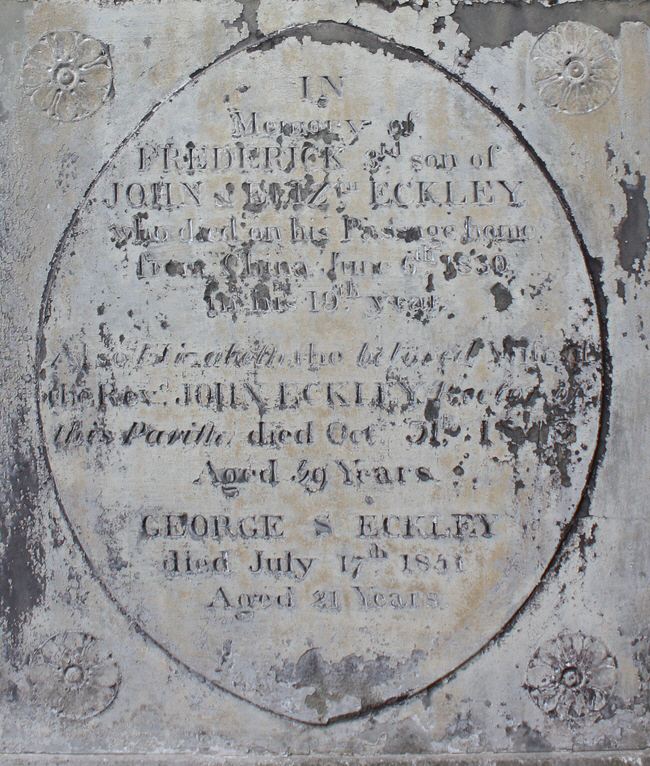 IN
Memory of
FREDERICK 3rd son of
JOHN & ELIZth ECKLEY
who died on his Passage home
from China June 6th 1830
in his 19th year.
Also Elizabeth the beloved Wife of
the Revd. JOHN ECKLEY Rector of
this Parish, died Octr 31st
Aged 59 Years
GEORGE S ECKLEY
died July 17th 1841
Aged 21 Years